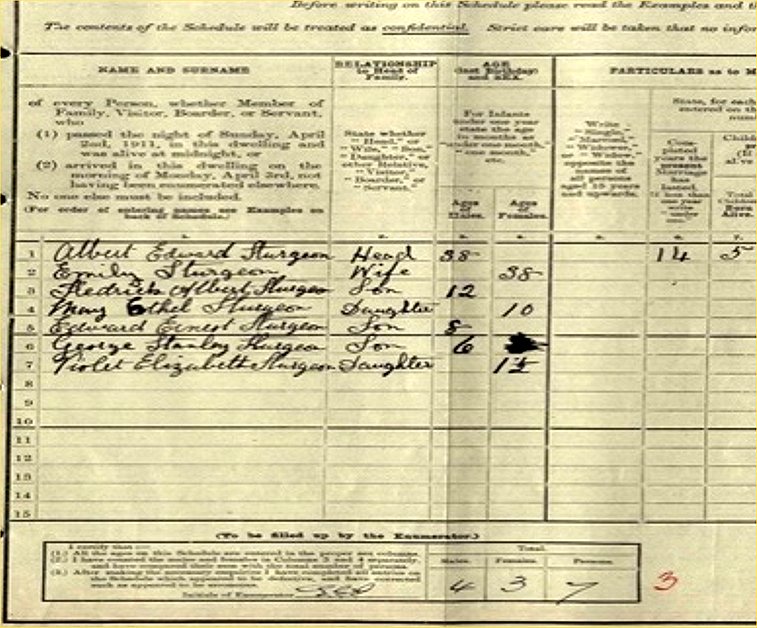 Before writing on this Schedule please read the Examples and th
The contents of the Schedule will be treated as confidential. Strict care will be taken that no infor
NAME AND SURNAME
RELATIONSHIP
to Head of
Family.
AGE
(last Birthday)
and SEX.
PARTICULARS as to M
of every Person, whether Member of
Family, Visitor, Boarder, or Servant,
who
(1) passed the night of Sunday, April
2nd, 1911, in this dwelling and
was alive at midnight, or
(2) arrived in this dwelling on the
morning of Monday, April 3rd, not
having been enumerated elsewhere.
No one else must be included.
(For order of entering names see Examples on
back of Schedule.)
State whether
"Head," or
"Wife," "Son,"
"Daughter," or
other Relative,
"Visitor,"
"Boarder," or
"Servant."
For Infants
under one year
state the age
in months as
"under one month,"
"one month,"
etc.
Ages
of
Males.
Ages
of
Females.
Write
"Single,"
"Married,"
"Widower,"
or "Widow,"
opposite the
names of
all persons
aged 15 years
and upwards.
State, for each
entered on th
Com-
pleted
years the
present
Marriage
has
lasted.
If less than
one year
write
"under
one."
Total
Children
Born
Alive.
1. 2. 3. 4. 5. 6. 7.
1 Albert Edward Sturgeon Head 38 14 5
2 Emily Sturgeon Wife 38
3 Fredrick Albert Sturgeon Son 12
4 May Ethel Sturgeon Daughter 10
5 Edward Ernest Sturgeon Son 8
6 George Stanley Sturgeon Son 6
7 Violet Elizabeth Sturgeon Daughter
8
9
10
11
12
13
14
15
(To be filled up by the Enumerator.)
I certify that:—
(1.) All the ages on this Schedule are entered in the proper sex columns.
(2.) I have counted the males and females in Columns 3 and 4 separately,
and have compared their sum with the total number of persons.
(3.) After making the necessary enquiries I have completed all entries on
the Schedule which appeared to be defective, and have corrected
such as appeared to be erroneous.
Initials of Enumerator
Total.
Males. Females. Persons.
4 3 7 3